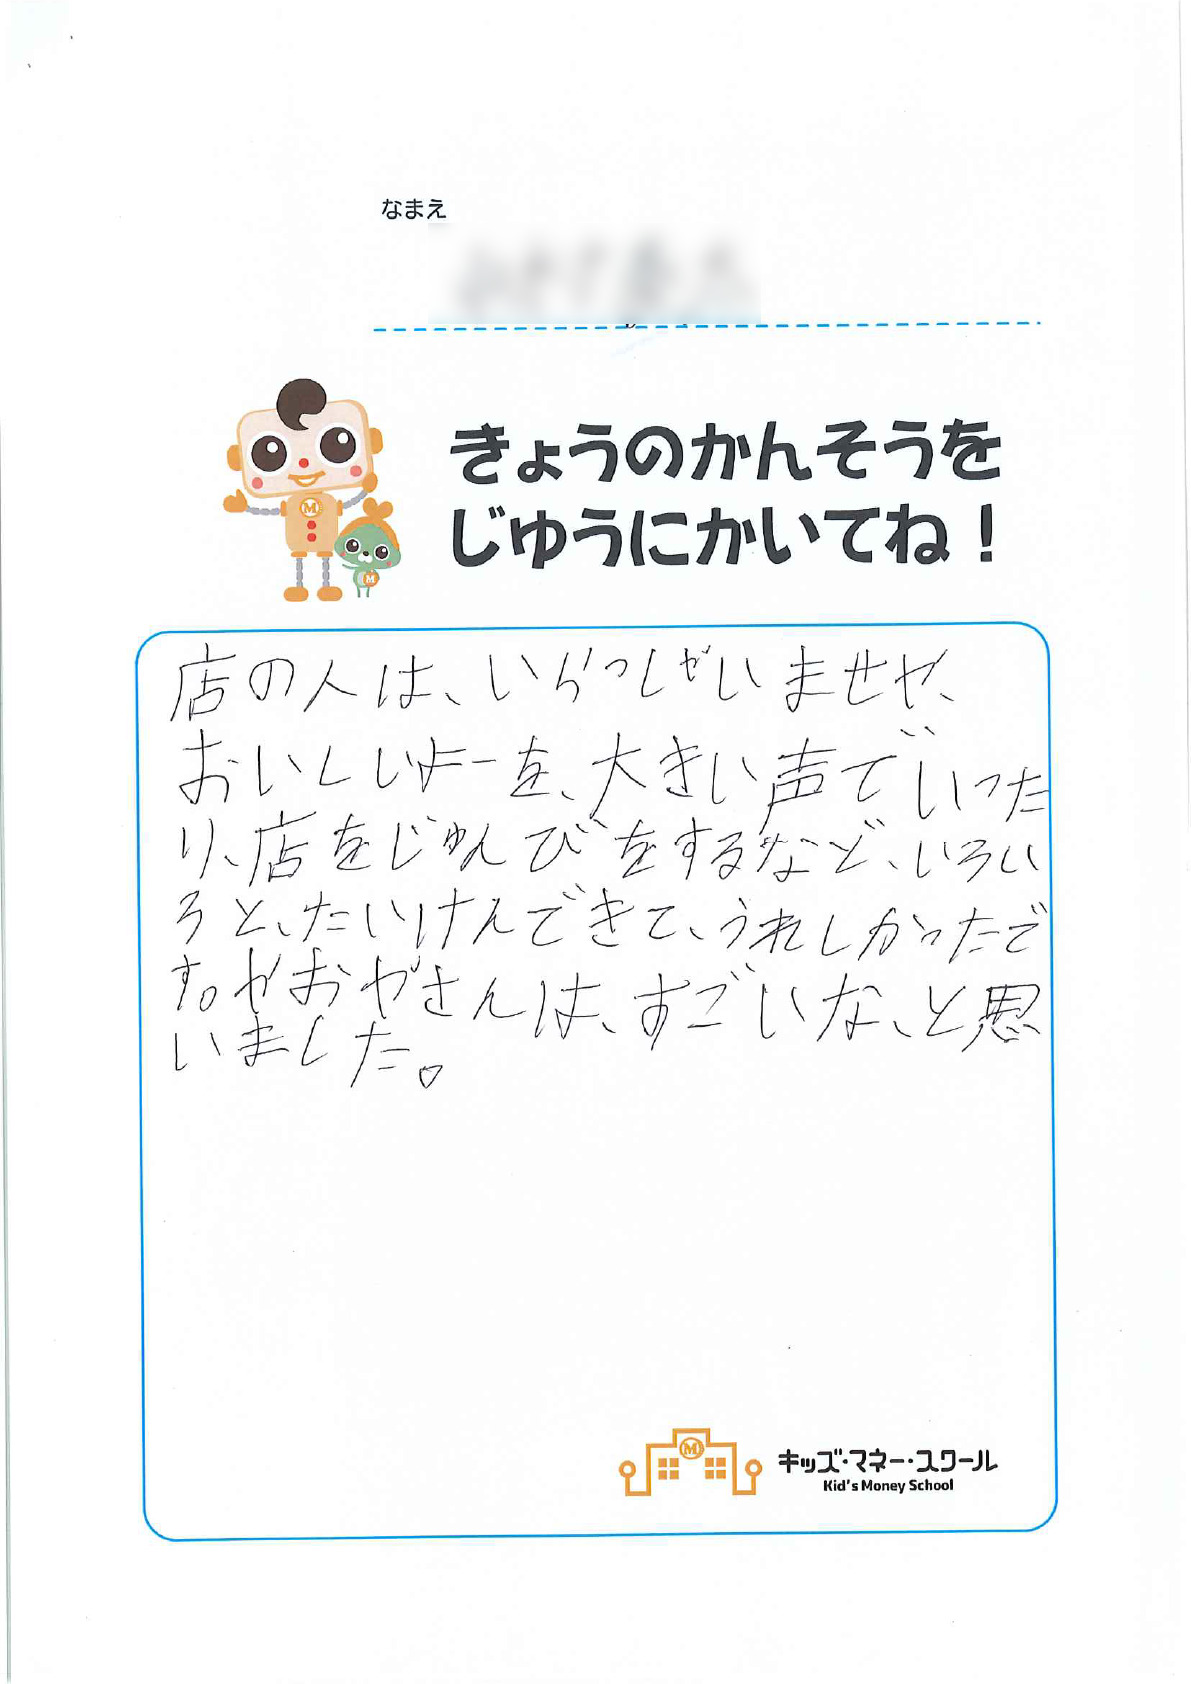 なまえ
きょうのかんそうを
じゆうにかいてね!
店の人は、いらっしゃいませや、
おいしいよーを、大きい声でいった
り、店をじゅんびをするなど、いろい
ろと、たいけんできて、うれしかったで
す。やおやさんは、すごいな、と思
いました。
M
キッズ・マネー・スクール
Kid's Money School